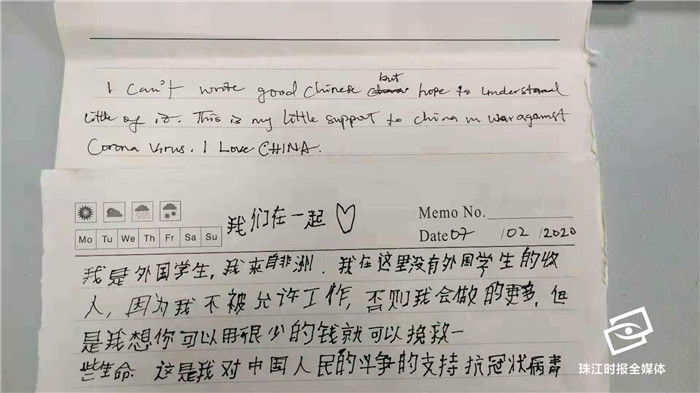 I can't wrote good Chinese but hope to understand
little of it. This is my little support to china in war against
Corona virus. I Love CHINA.
我们在一起♡
Memo No.
Mo Tu We Th Fr Sa Su
Date 07 /02 /2020
我是外国学生,我来自非洲.我在这里没有外国学生的收
人,因为我不被允许工作,否则我会做的更多,但
是我想你可以用很少的钱就可以挽救一
些生命.这是我对中国人民的斗争的支持抗冠状病毒
珠江时报全媒体